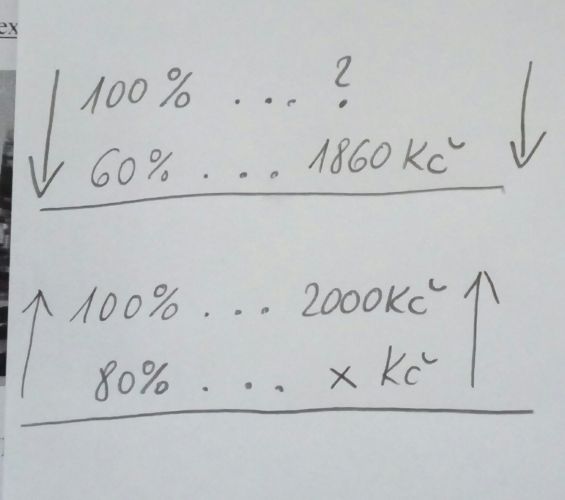 ex
100% ... ?
60% ... 1860 Kč
100% ... 2000Kč
80% ... x Kč